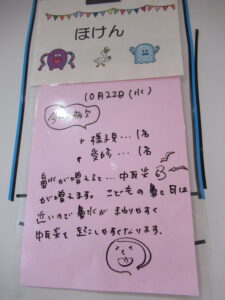 ほけん
10月22日(水)
今日の病欠
様子見…1名
受診…1名
鼻水が増えると…中耳炎
が増えます。こどもの鼻と耳は
近いので鼻水が まわりやすく
中耳炎を起こしやすくなります。